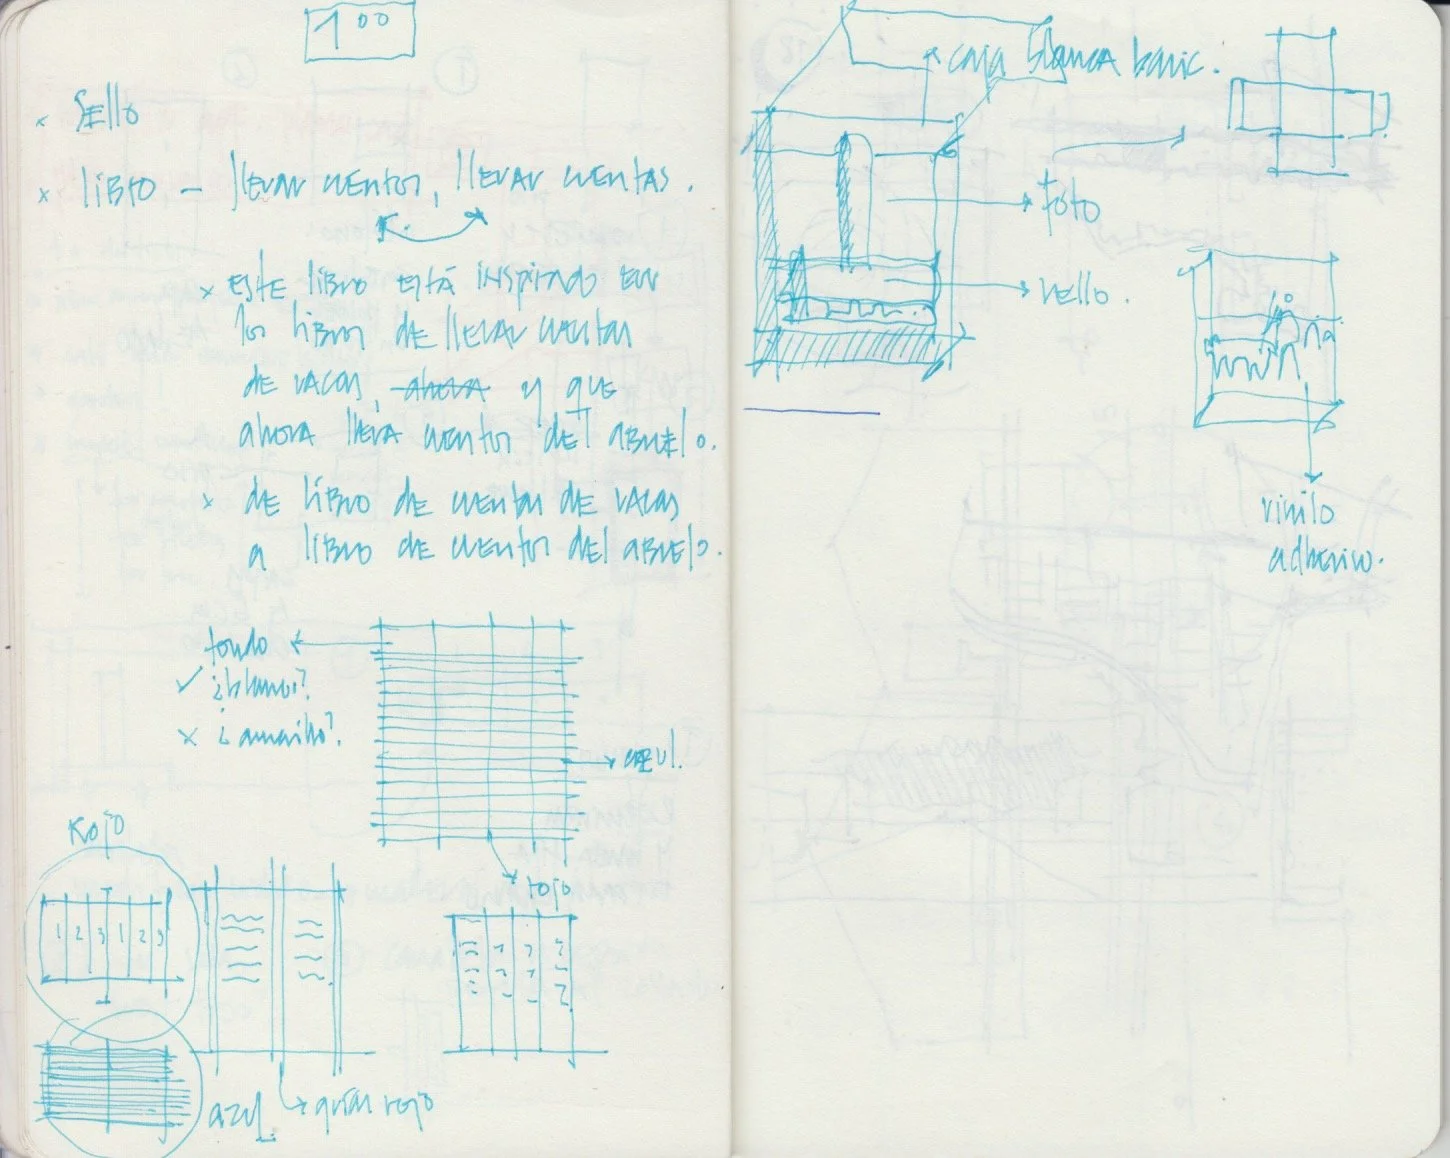 100
× SELLO
× LIBRO – llevar cuentos, llevar cuentas.
× ESTE libro está inspirado en
los libros de llevar cuentas
de vacas, ahora y que
ahora lleva cuentos del abuelo.
× de libro de cuentas de vacas
a libro de cuentos del abuelo.
fondo
✓ ¿blanco?
× ¿amarillo?
azul.
rojo
Rojo
1 2 3 1 2 3
azul
guías rojo
caja blanca basic.
foto
sello.
vinilo
adhesivo.